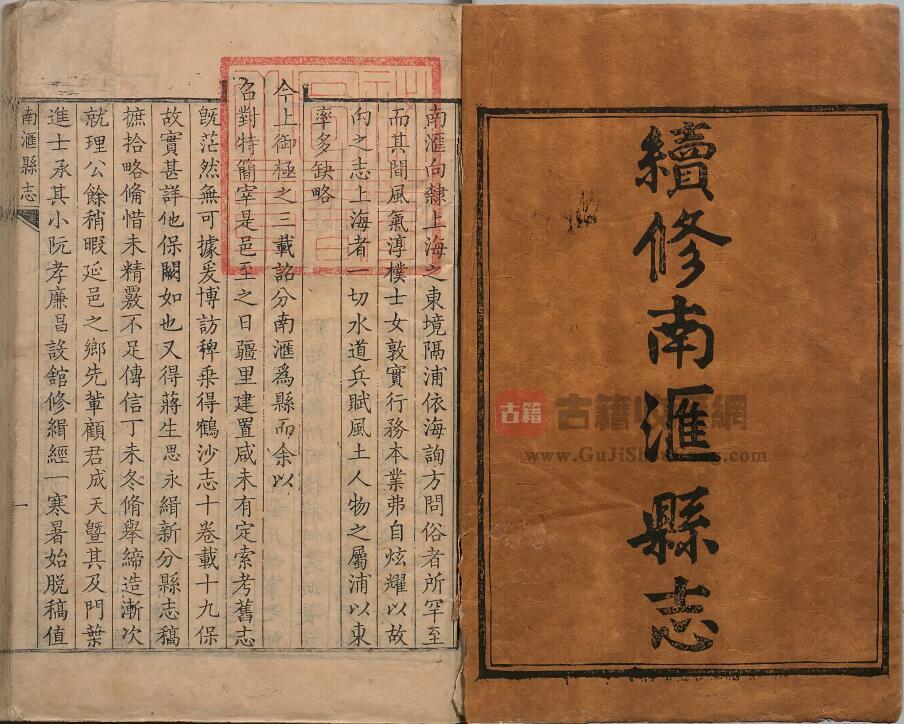 續修南滙縣志
南滙向隸上海之東境隔浦依海詢方問俗者所罕至
而其間風氣淳樸士女敦實行務本業弗自炫耀以故
向之志上海者一切水道兵賦風土人物之屬浦以東
率多缺略
今上御極之三載詔分南滙爲縣而余以
召對特簡宰是邑至之日疆里建置咸未有定索考舊志
旣茫然無可據爰博訪稗乘得鶴沙志十卷載十九保
故實甚詳他保闕如也又得蔣生思永緝新分縣志稿
摭拾略備惜未精覈不足傳信丁未冬脩舉締造漸次
就理公餘稍暇延邑之鄉先軰顧君成天曁其及門葉
進士承其小阮孝廉昌設舘修緝經一寒暑始脱稿值
南滙縣志
一
古籍
www.GuJiSh